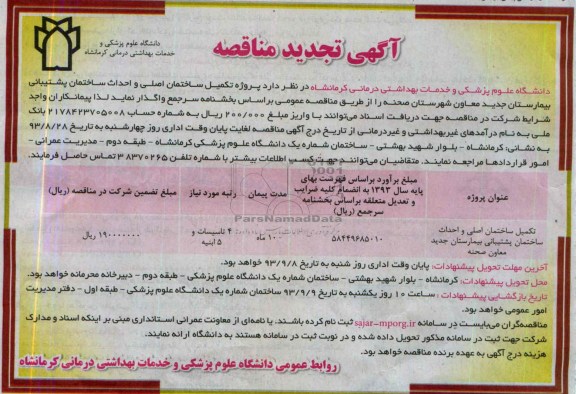 دانشگاه علوم پزشکی و
خدمات بهداشتی درمانی کرمانشاه
آگهی تجدید مناقصه
دانشگاه علوم پزشکی و خدمات بهداشتی درمانی کرمانشاه در نظر دارد پروژه تکمیل ساختمان اصلی و احداث ساختمان پشتیبانی
بیمارستان جدید معاون شهرستان صحنه را از طریق مناقصه عمومی براساس بخشنامه سرجمع واگذار نماید لذا پیمانکاران واجد
شرایط شرکت در مناقصه جهت دریافت اسناد می‌توانند با واریز مبلغ ۲۰۰/۰۰۰ ریال به شماره حساب ۲۱۷۸۴۲۳۷۰۵۰۰۸ بانک
ملی به نام درآمدهای غیربهداشتی و غیردرمانی از تاریخ درج آگهی مناقصه لغایت پایان وقت اداری روز چهارشنبه به تاریخ ۹۳/۸/۲۸
به نشانی: کرمانشاه - بلوار شهید بهشتی - ساختمان شماره یک دانشگاه علوم پزشکی کرمانشاه - طبقه دوم - مدیریت عمرانی -
امور قراردادها مراجعه نمایند. متقاضیان می‌توانند جهت کسب اطلاعات بیشتر با شماره تلفن ۳۸۳۷۰۲۶۵ تماس حاصل فرمایند.
عنوان پروژه
مبلغ برآورد براساس فهرست بهای
پایه سال ۱۳۹۳ به انضمام کلیه ضرایب
و تعدیل متعلقه براساس بخشنامه
سرجمع (ریال)
مدت پیمان
رتبه مورد نیاز
مبلغ تضمین شرکت در مناقصه (ریال)
تکمیل ساختمان اصلی و احداث
ساختمان پشتیبانی بیمارستان جدید
معاون صحنه
۵۸۴۴۹۶۸۵۰۱۰
۱۰۰ ماه
۴ تاسیسات و
۵ ابنیه
۱۹۰۰۰۰۰۰۰ ریال
ParsNamadData
آخرین مهلت تحویل پیشنهادات: پایان وقت اداری روز شنبه به تاریخ ۹۳/۹/۸ خواهد بود.
محل تحویل پیشنهادات: کرمانشاه - بلوار شهید بهشتی - ساختمان شماره یک دانشگاه علوم پزشکی - طبقه دوم - دبیرخانه محرمانه خواهد بود.
تاریخ بازگشایی پیشنهادات: ساعت ۱۰ روز یکشنبه به تاریخ ۹۳/۹/۹ ساختمان شماره یک دانشگاه علوم پزشکی - طبقه اول - دفتر مدیریت
امور عمومی خواهد بود.
مناقصه‌گران می‌بایست در سامانه sajar-mporg.ir ثبت نام کرده باشند. یا نامه‌ای از معاونت عمرانی استانداری مبنی بر اینکه اسناد و مدارک
شرکت جهت ثبت در سامانه مذکور تحویل داده شده و در نوبت ثبت در سامانه هستند به دانشگاه ارائه نمایند.
هزینه درج آگهی به عهده برنده مناقصه خواهد بود.
روابط عمومی دانشگاه علوم پزشکی و خدمات بهداشتی درمانی کرمانشاه